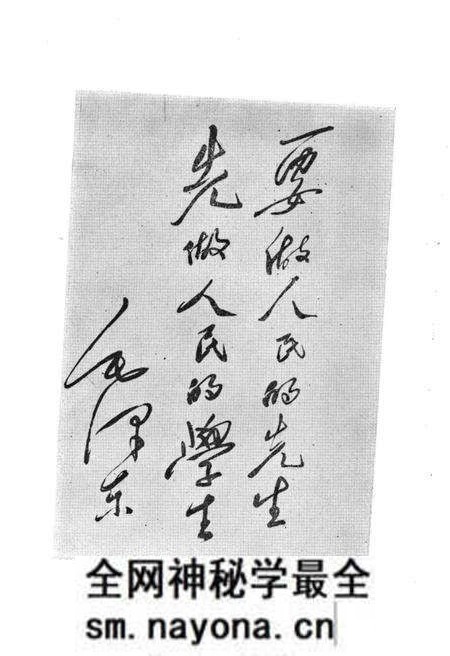 要做人民的先生
先做人民的學生
毛泽东
全网神秘学最全
sm.nayona.cn